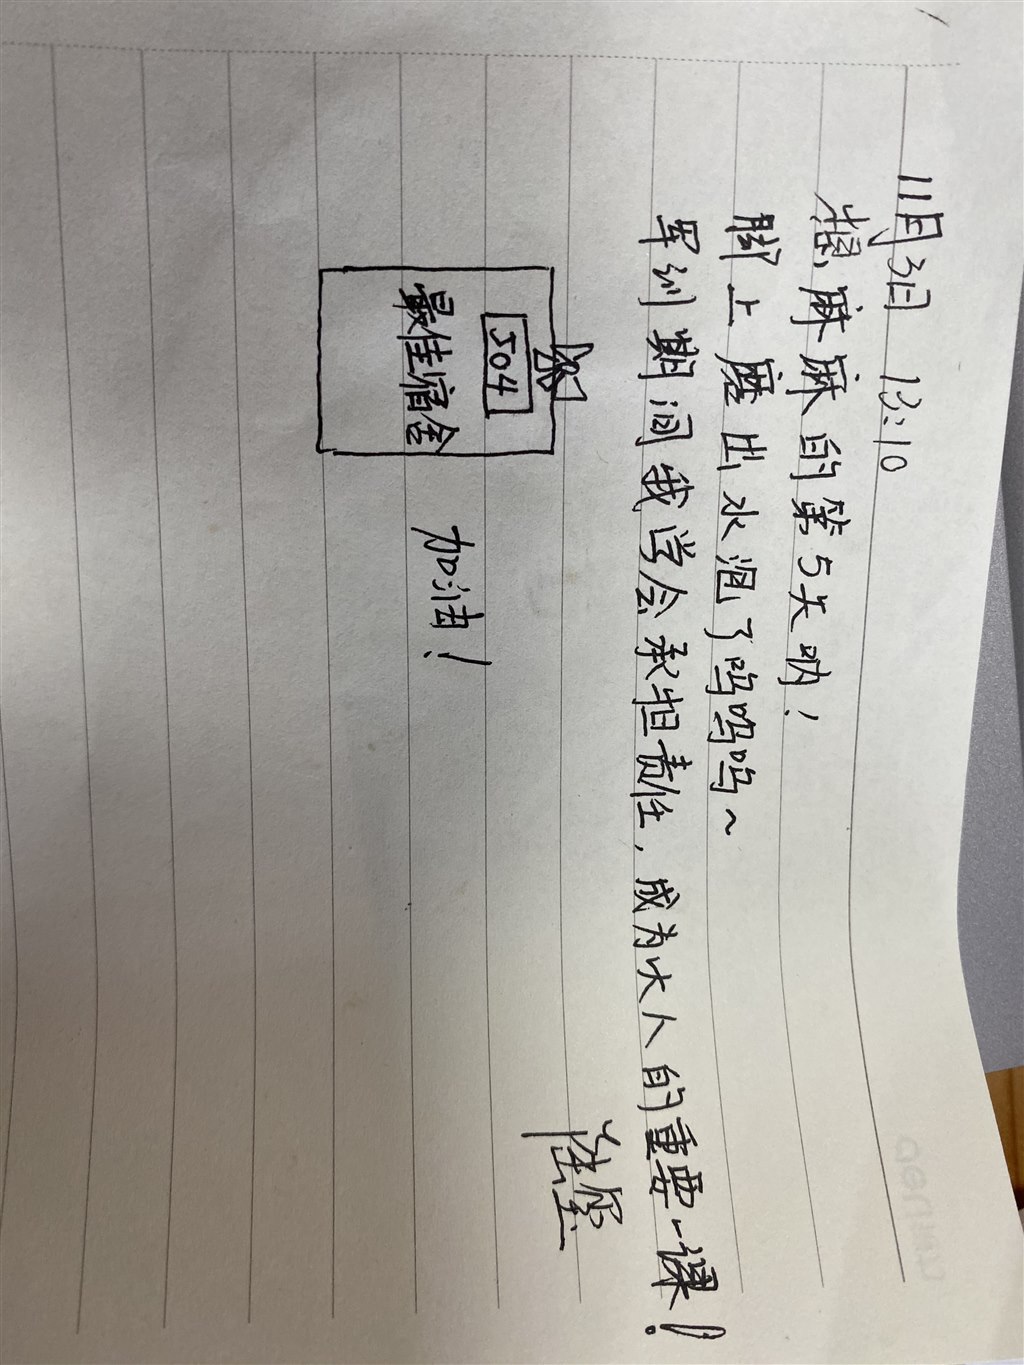 11月3日 13:10
想麻麻的第5天呐!
脚上磨出水泡了呜呜呜~
军训期间我学会承担责任,成为大人的重要一课!
504
最佳宿舍
加油!